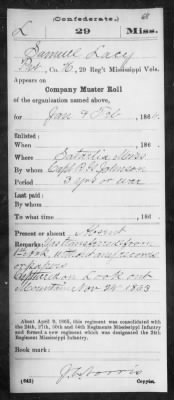 (Confederate.) 68
L 29 Miss.
Samuel Lacy
Pvt, Co. K, 29 Reg't Mississippi Vols.
Appears on
Company Muster Roll
of the organization named above,
for Jan & Feb, 1864.
Enlisted:
When , 186 .
Where Satartia Miss
By whom Capt. Johnson
Period 3 yrs or war
Last paid:
By whom
To what time , 186 .
Present or absent Absent
Remarks: Was transferred from
Co. K, without any record
or papers
Captured on Look out
Mountain Nov 24 1863
About April 9, 1865, this regiment was consolidated with
the 24th, 27th, 30th and 34th Regiments Mississippi Infantry
and formed a new regiment which was designated the
24th Mississippi Infantry.
Book mark:
(642) Copyist.